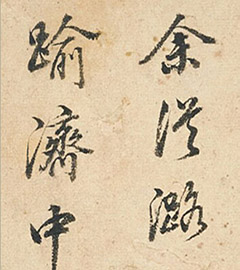 余從潞
踰濟中